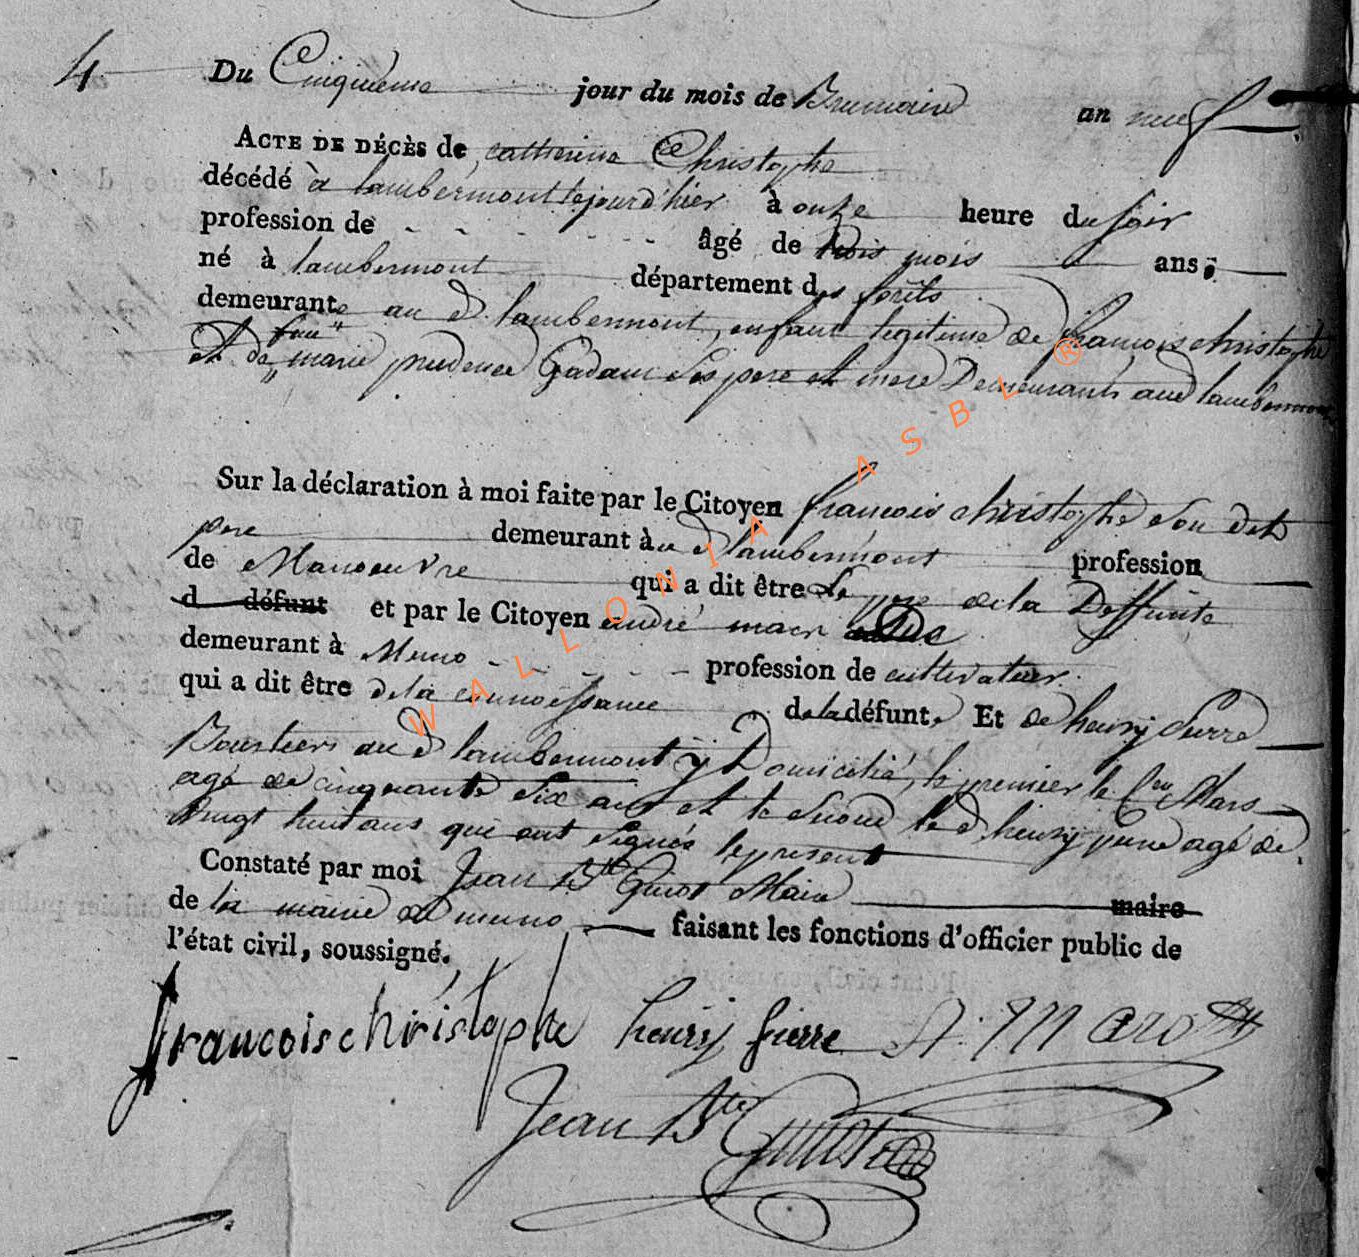 4 Du Cinquieme jour du mois de Brumaire an neuf
ACTE DE DÉCÈS de catherine Christophe
décédé à lambermont le jour d'hier à onze heure du soir
profession de âgé de trois mois ans,
né à lambermont département des forêts
demeurante au d. lambermont, enfant legitime de francois christophe
et de feu marie prudence Gadaux ses pere et mere Demeurants aud lambermont
Sur la déclaration à moi faite par le Citoyen francois christophe son dit
pere demeurant à au d lambermont profession
de Manoeuvre qui a dit être le pere de la Deffunte
d défunt et par le Citoyen andré maer
demeurant à Muno profession de cultivateur
qui a dit être de la connoissance de la défunte Et de henry
au d lambermont y Domicilié, le premier le Cen Mars
agé de cinquante six ans et le second le d henry agé de
vingt huit ans qui ont signés le present
Constaté par moi Jean Bte Guiot Maire maire
de la mairie de muno faisant les fonctions d'officier public de
l'état civil, soussigné.
francois christophe henrÿ pierre A. Maro
Jean Bte Guiot
WALLONIA ASBL ®